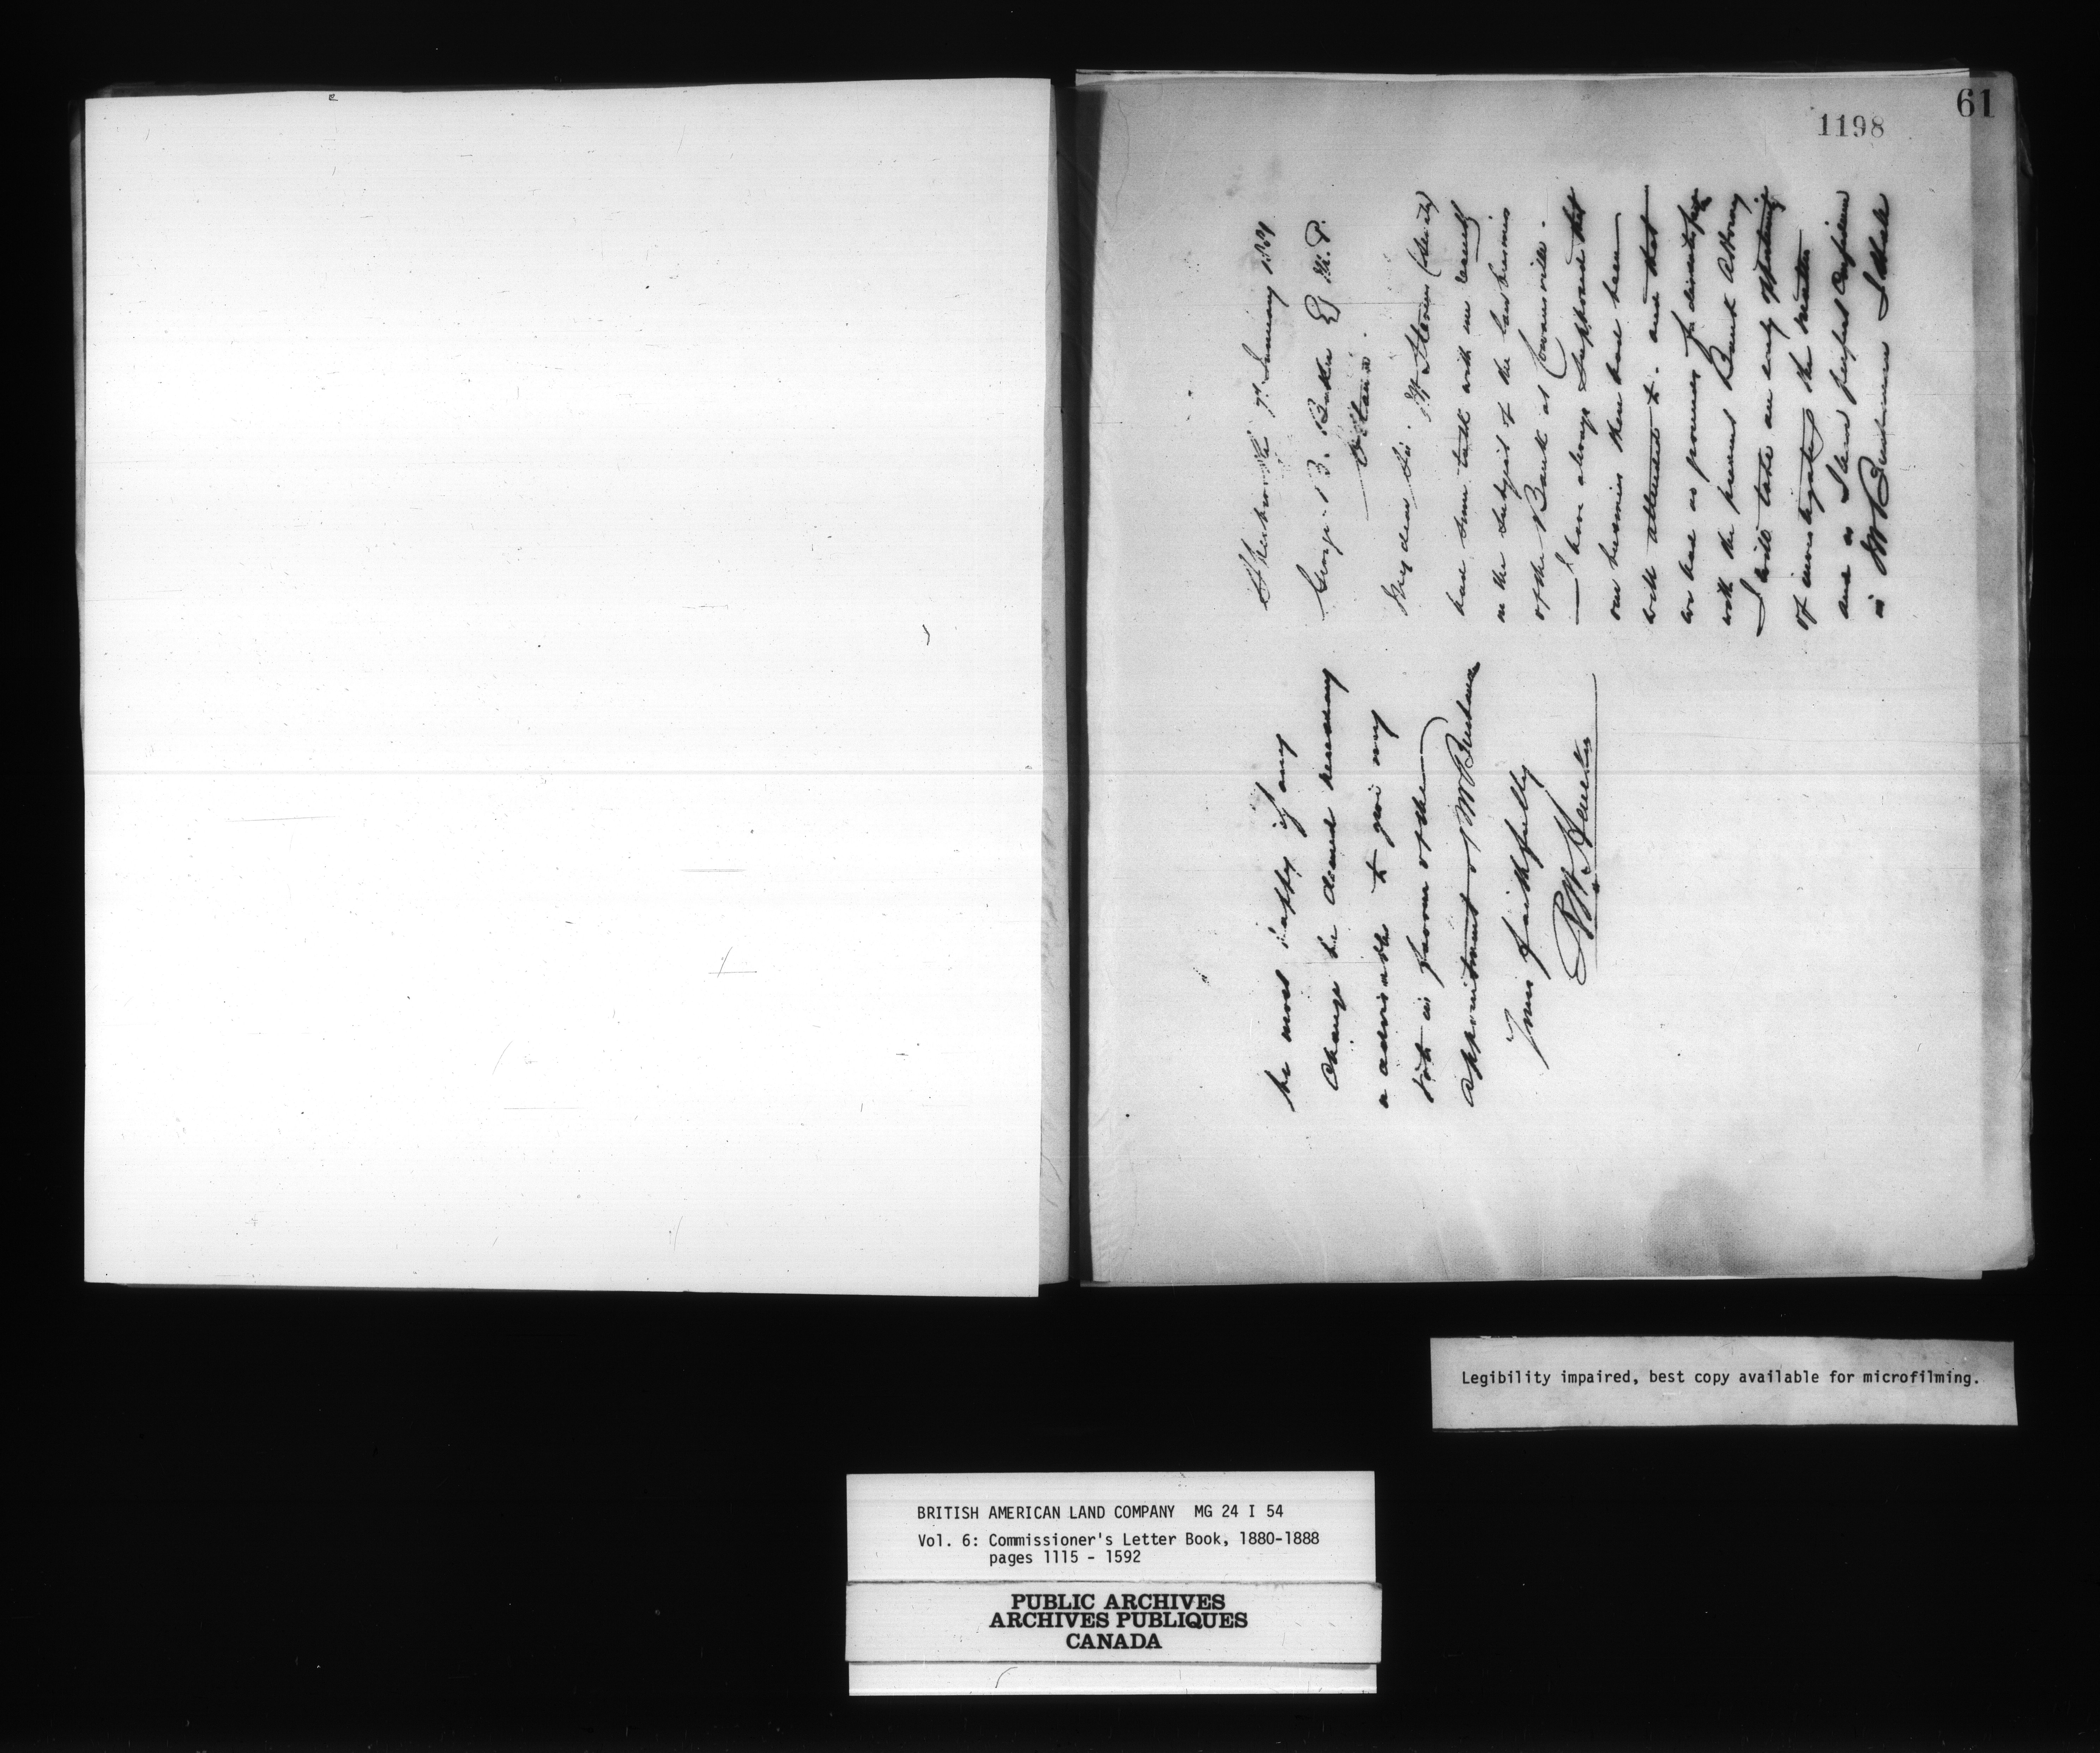 61
1198
Sherbrooke 7th January 1884
George B. Baker Esq M.P.
Ottawa.
My dear Sir. Mr Stevens (
have some talk with me recently
on the subject of the law business
of the Bank at Cowansville.
— I have always supposed that
our business there had been
well attended to. and that
we had no grounds for dissatisfaction
with the present Bank Attorney.
I will take an early opportunity
of investigating the matter
and as I have perfect confidence
in Mr Buchanan I shall
be most happy if any
change be deemed necessary
or advisable to give my
vote in favour of the
appointment of Mr Buchanan
Yours faithfully
R. W. Heneker
Legibility impaired, best copy available for microfilming.
BRITISH AMERICAN LAND COMPANY MG 24 I 54
Vol. 6: Commissioner's Letter Book, 1880-1888
pages 1115 - 1592
PUBLIC ARCHIVES
ARCHIVES PUBLIQUES
CANADA